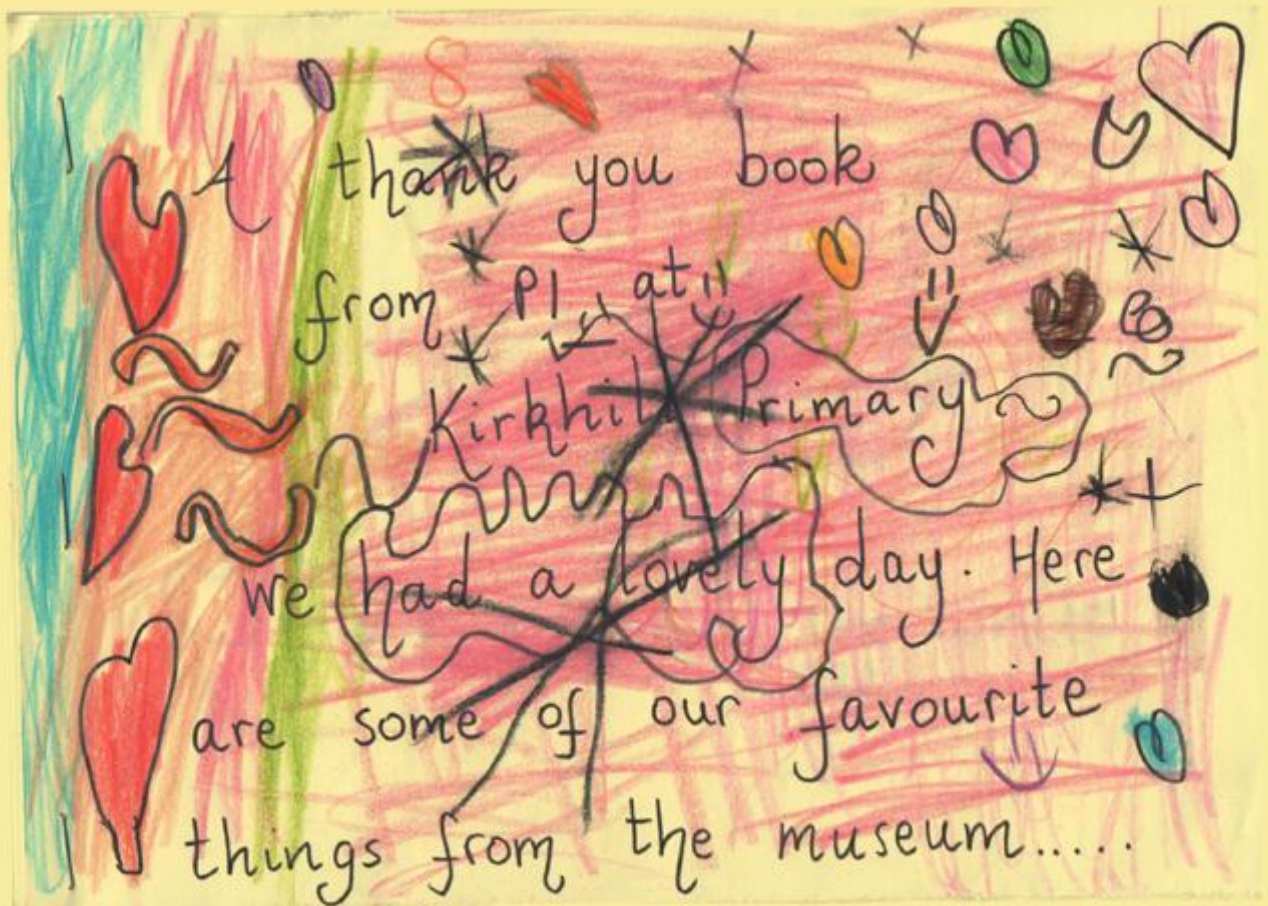 A thank you book
from P1 at
Kirkhill Primary
We had a lovely day. Here
are some of our favourite
things from the museum.....